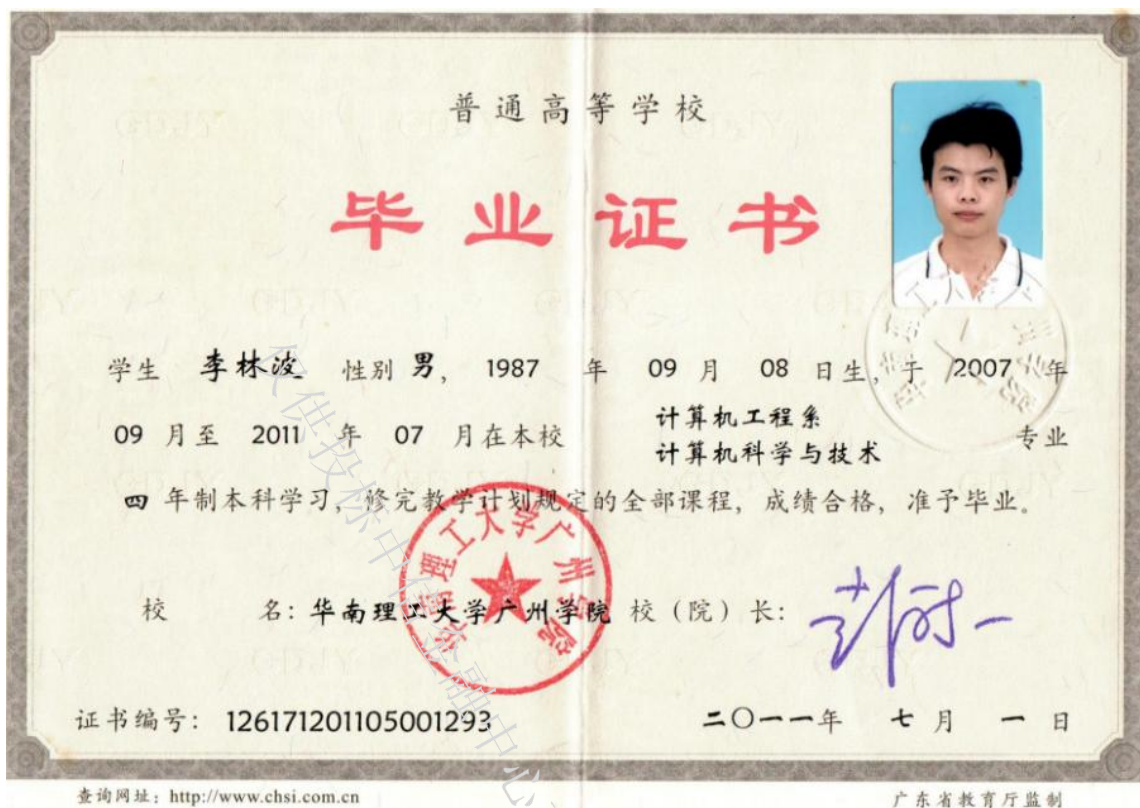 普通高等学校
毕业证书
学生 李林波 性别 男, 1987 年 09 月 08 日生, 于 2007 年
09 月至 2011 年 07 月在本校 计算机工程系 计算机科学与技术 专业
四 年制本科学习, 修完教学计划规定的全部课程, 成绩合格, 准予毕业。
华南理工大学广州学院
校 名: 华南理工大学广州学院 校 (院) 长:
证书编号: 126171201105001293 二〇一一年 七 月 一 日
查询网址: http://www.chsi.com.cn 广东省教育厅监制
仅供投标中
金融中心